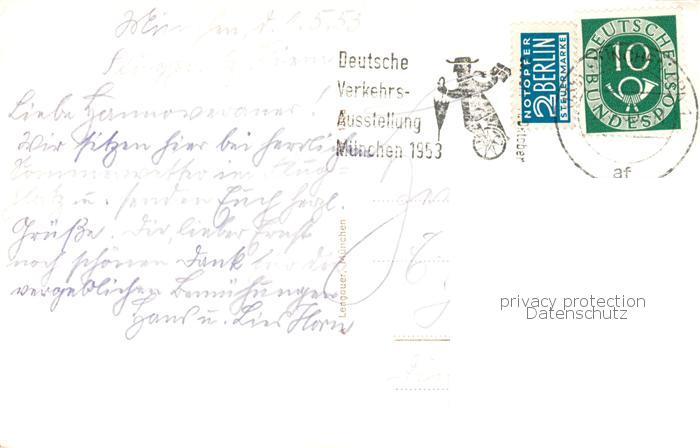 München, d. 5.53
Liebe Hannoveraner!
Wir sitzen hier bei herrlich
Sommerwetter im Flug-
platz u. senden Euch herzl.
Grüße. Dir, lieber Ernst
noch schönen Dank für die
vergeblichen Bemühungen
Hans u. Lies
Deutsche
Verkehrs-
Ausstellung
München 1953
NOTOPFER
2 BERLIN
STEUERMARKE
DEUTSCHE
BUNDESPOST
10
af
Lengauer, München
privacy protection
Datenschutz